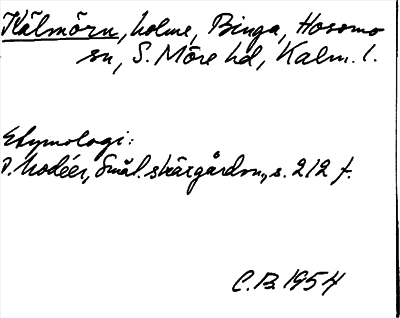 Kälmörn, holme, Binga, Hossmo
sn, S. Möre hd, Kalm. l.
Etymologi:
I. Modéer, Smål. skärgården, s. 212 f.
C.B. 1954